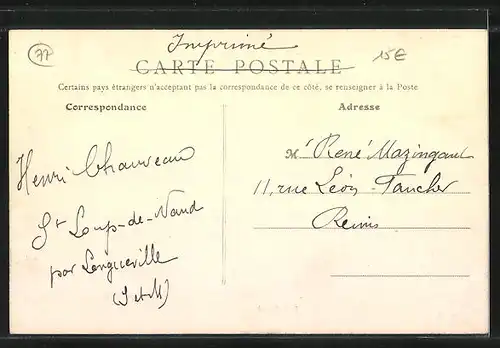 77
Imprimé
15€
CARTE POSTALE
Certains pays étrangers n'acceptant pas la correspondance de ce côté, se renseigner à la Poste
Correspondance
Henri Chauveau
St Loup-de-Naud
par Longueville
(S et M)
Adresse
M René Mazingant
11, rue Léon-Faucher
Reims